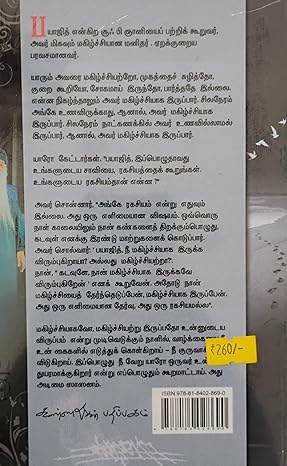 பயாஜித் என்கிற சூஃபி ஞானியைப் பற்றிக் கூறுவர்,
அவர் மிகவும் மகிழ்ச்சியான மனிதர் . ஏறக்குறைய
பரவசமானவர்.
யாரும் அவரை மகிழ்ச்சியற்றோ, முகத்தைச் சுழித்தோ,
குறை கூறியோ, சோகமாய் இருந்தோ, பார்த்ததே இல்லை.
என்ன நிகழ்ந்தாலும் அவர் மகிழ்ச்சியாக இருப்பார். சிலநேரம்
அங்கே உணவிருக்காது, ஆனால், அவர் மகிழ்ச்சியாக
இருப்பார். சிலநேரம் நாட்கணக்கில் அவர் உணவில்லாமல்
இருப்பார், ஆனால், அவர் மகிழ்ச்சியாக இருப்பார்.
யாரோ கேட்டார்கள். "பயாஜித், இப்பொழுதாவது
உங்களுடைய சாவியை, ரகசியத்தைக் கூறுங்கள்.
உங்களுடைய ரகசியம்தான் என்ன?"
அவர் சொன்னார், "அங்கே ரகசியம் என்று எதுவும்
இல்லை. அது ஒரு எளிமையான விஷயம். ஒவ்வொரு
நாள் காலையிலும் நான் கண்களைத் திறக்கும்பொழுது,
கடவுள் எனக்கு இரண்டு மாற்றுகளைக் கொடுப்பார்.
அவர் சொல்வார்: 'பயாஜித், நீ மகிழ்ச்சியாக இருக்க
விரும்புகிறாயா? அல்லது மகிழ்ச்சியற்றா?'.
நான், 'கடவுளே, நான் மகிழ்ச்சியாக இருக்கவே
விரும்புகிறேன்' எனக் கூறுவேன். அதோடு நான்
மகிழ்ச்சியைத் தேர்ந்தெடுப்பேன், மகிழ்ச்சியாக இருப்பேன்.
அது ஒரு எளிமையான தேர்வு. அது ஒரு ரகசியமல்ல".
மகிழ்ச்சியாகவோ, மகிழ்ச்சியற்றோ இருப்பதோ உன்னுடைய
விருப்பம். என்று முடிவெடுக்கும் நாளில், வாழ்க்கையை நீ
உன் கைகளில் எடுத்துக் கொள்கிறாய் – நீ குருவாக
விடுகிறாய். இப்பொழுது நீ வேறு யாரோ ஒருவர் உன்னை
துயரமாக்குகிறார் என்று எப்பொழுதும் கூறமாட்டாய். அது
அடிமை சாசனம்.
₹260/-
ISBN 978-81-8402-869-0
கண்ணதாசன் பதிப்பகம்